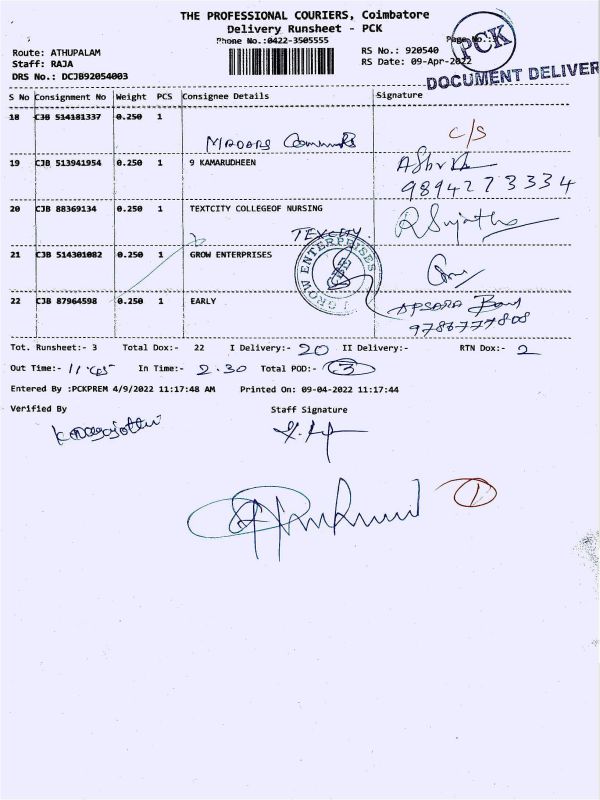 THE PROFESSIONAL COURIERS, Coimbatore
Delivery Runsheet - PCK
Phone No.:0422-3505555
PCK
Route: ATHUPALAM
RS No.: 920540
Staff: RAJA
RS Date: 09-Apr-2022
DRS No.: DCJB92054003
DOCUMENT DELIVER
S No Consignment No Weight PCS Consignee Details Signature
18 CJB 514181337 0.250 1
C/S
19 CJB 513941954 0.250 1 9 KAMARUDHEEN
9894273334
20 CJB 88369134 0.250 1 TEXTCITY COLLEGEOF NURSING
TEXCITY.
21 CJB 514301082 0.250 1 GROW ENTERPRISES
GROW ENTERPRISES
22 CJB 87964598 0.250 1 EARLY
APSARA
9786777808
Tot. Runsheet:- 3 Total Dox:- 22 I Delivery:- 20 II Delivery:- RTN Dox:- 2
Out Time:- In Time:- 2.30 Total POD:- 3
Entered By :PCKPREM 4/9/2022 11:17:48 AM Printed On: 09-04-2022 11:17:44
Verified By Staff Signature
1